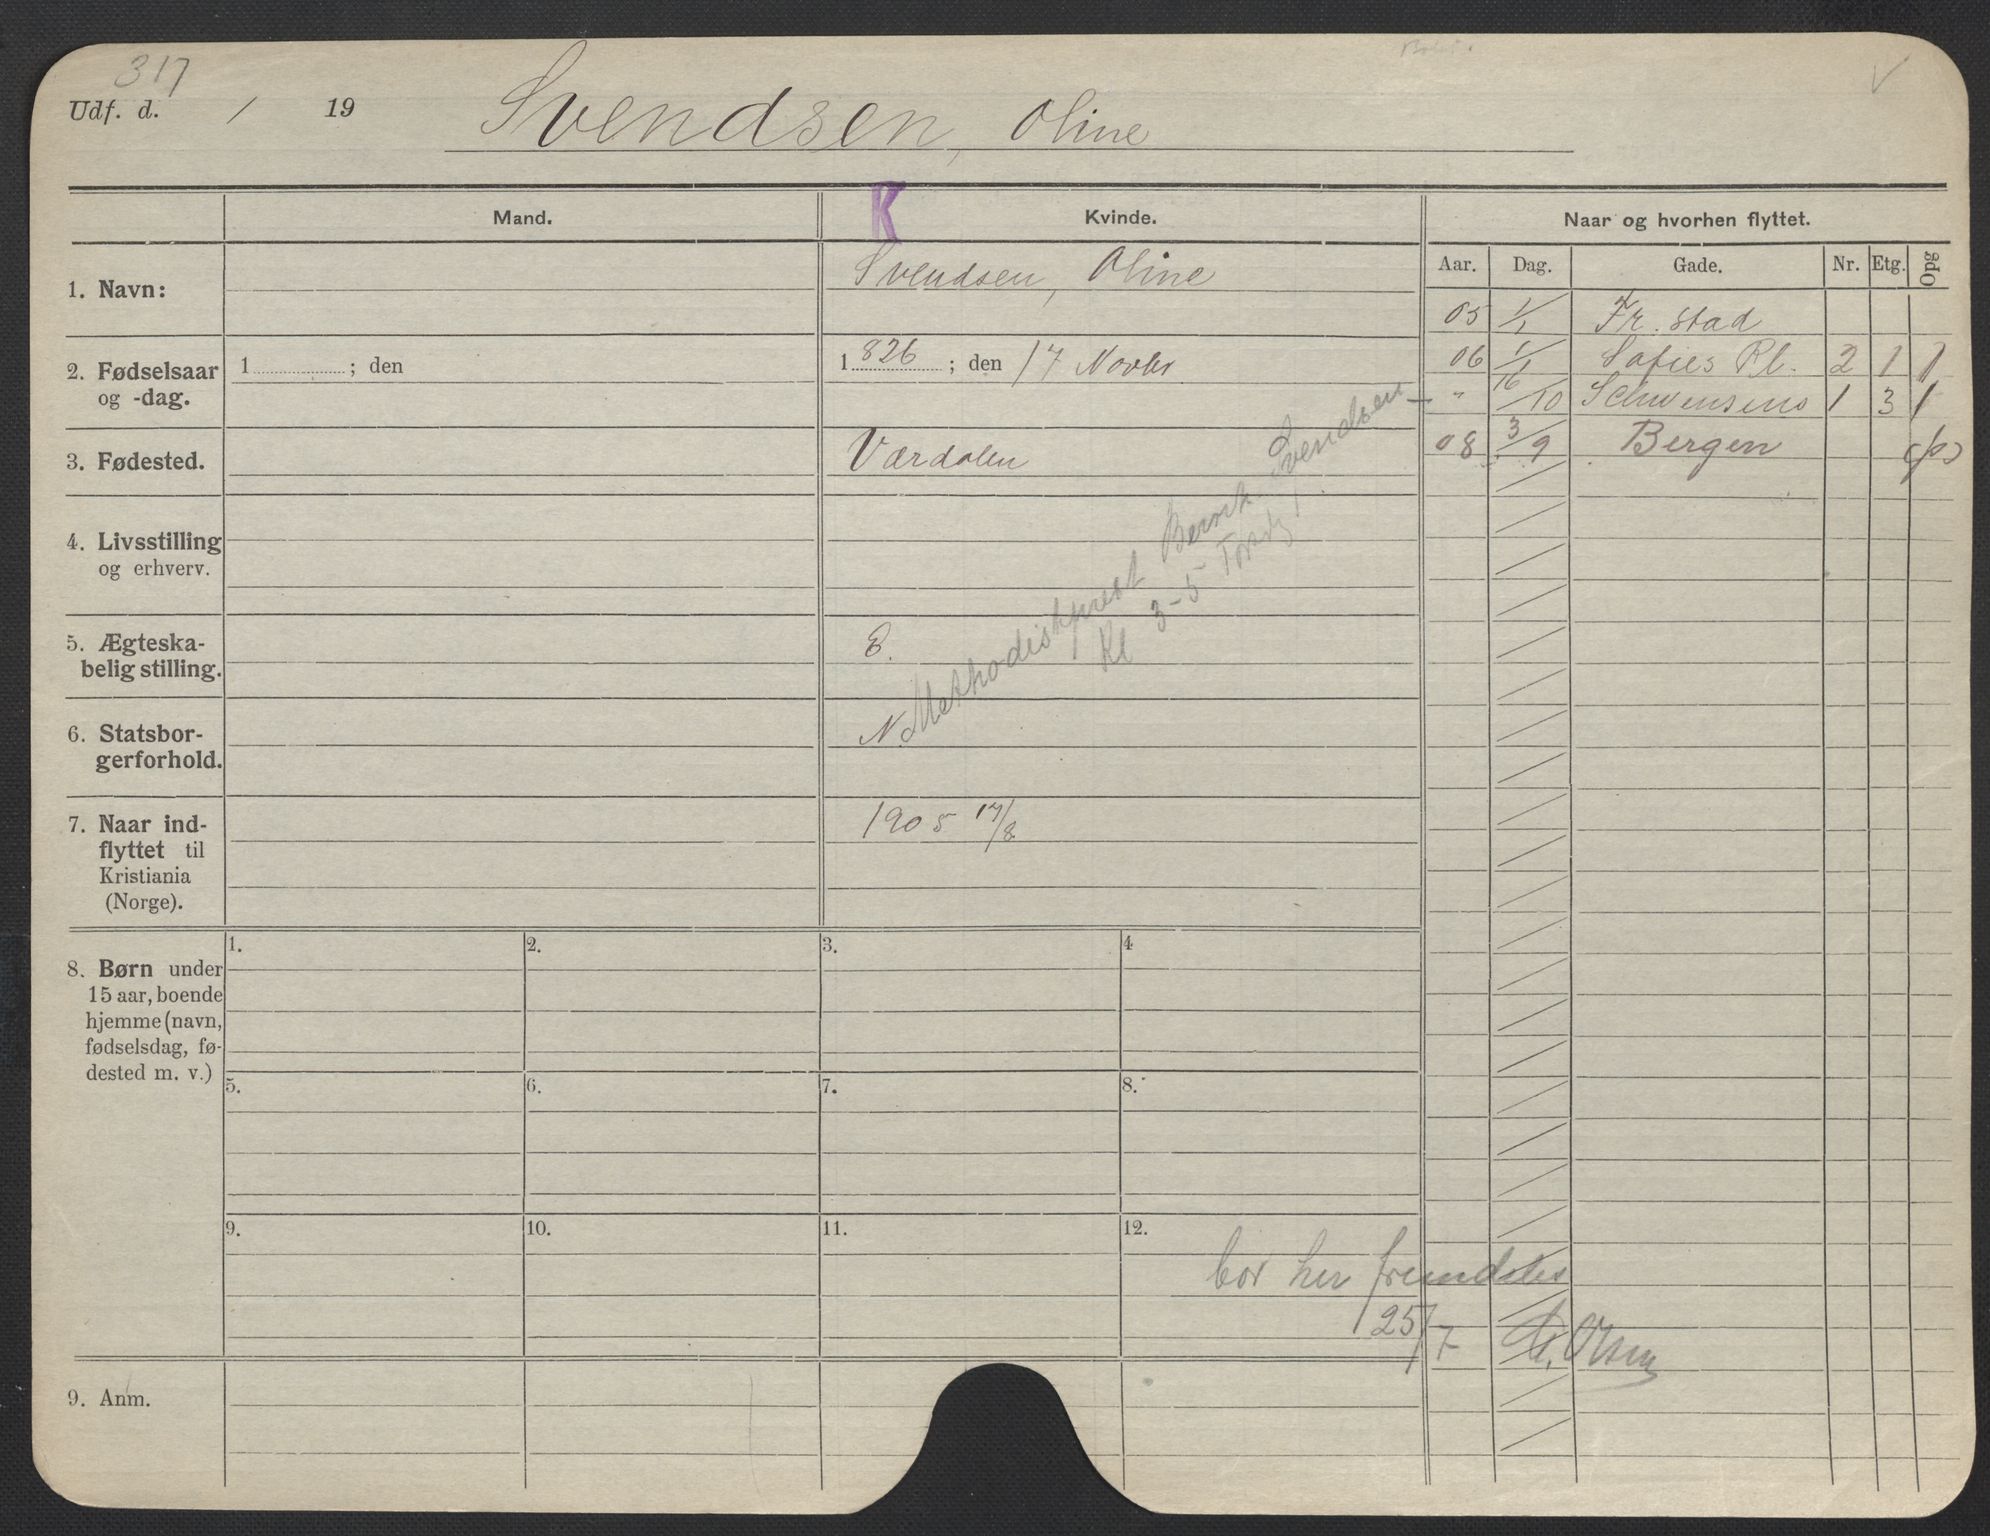 317
Udf. d. / 19 Svendsen, Oline
K
Mand. Kvinde. Naar og hvorhen flyttet.
Aar. Dag. Gade. Nr. Etg. Opg
1. Navn: Svendsen, Oline
05 1/1 Fr. stad
2. Fødselsaar og -dag. 1 ; den 1826 ; den 17 Novbr
06 1/1 Sofies Pl. 2 1 1
" 16/10 Schwensens 1 3 1
3. Fødested. Værdalen
08 3/9 Bergen
4. Livsstilling
og erhverv.
Methodistprest Bernh. Svendsen
Kl 3-5
5. Ægteska-
belig stilling. E.
6. Statsbor-
gerforhold. N.
7. Naar ind-
flyttet til
Kristiania
(Norge). 1905 17/8
8. Børn under
15 aar, boende
hjemme (navn,
fødselsdag, fø-
dested m. v.)
1. 2. 3. 4
5. 6. 7. 8.
9. 10. 11. 12.
bor her fremdeles
25/7 Olsen
9. Anm.